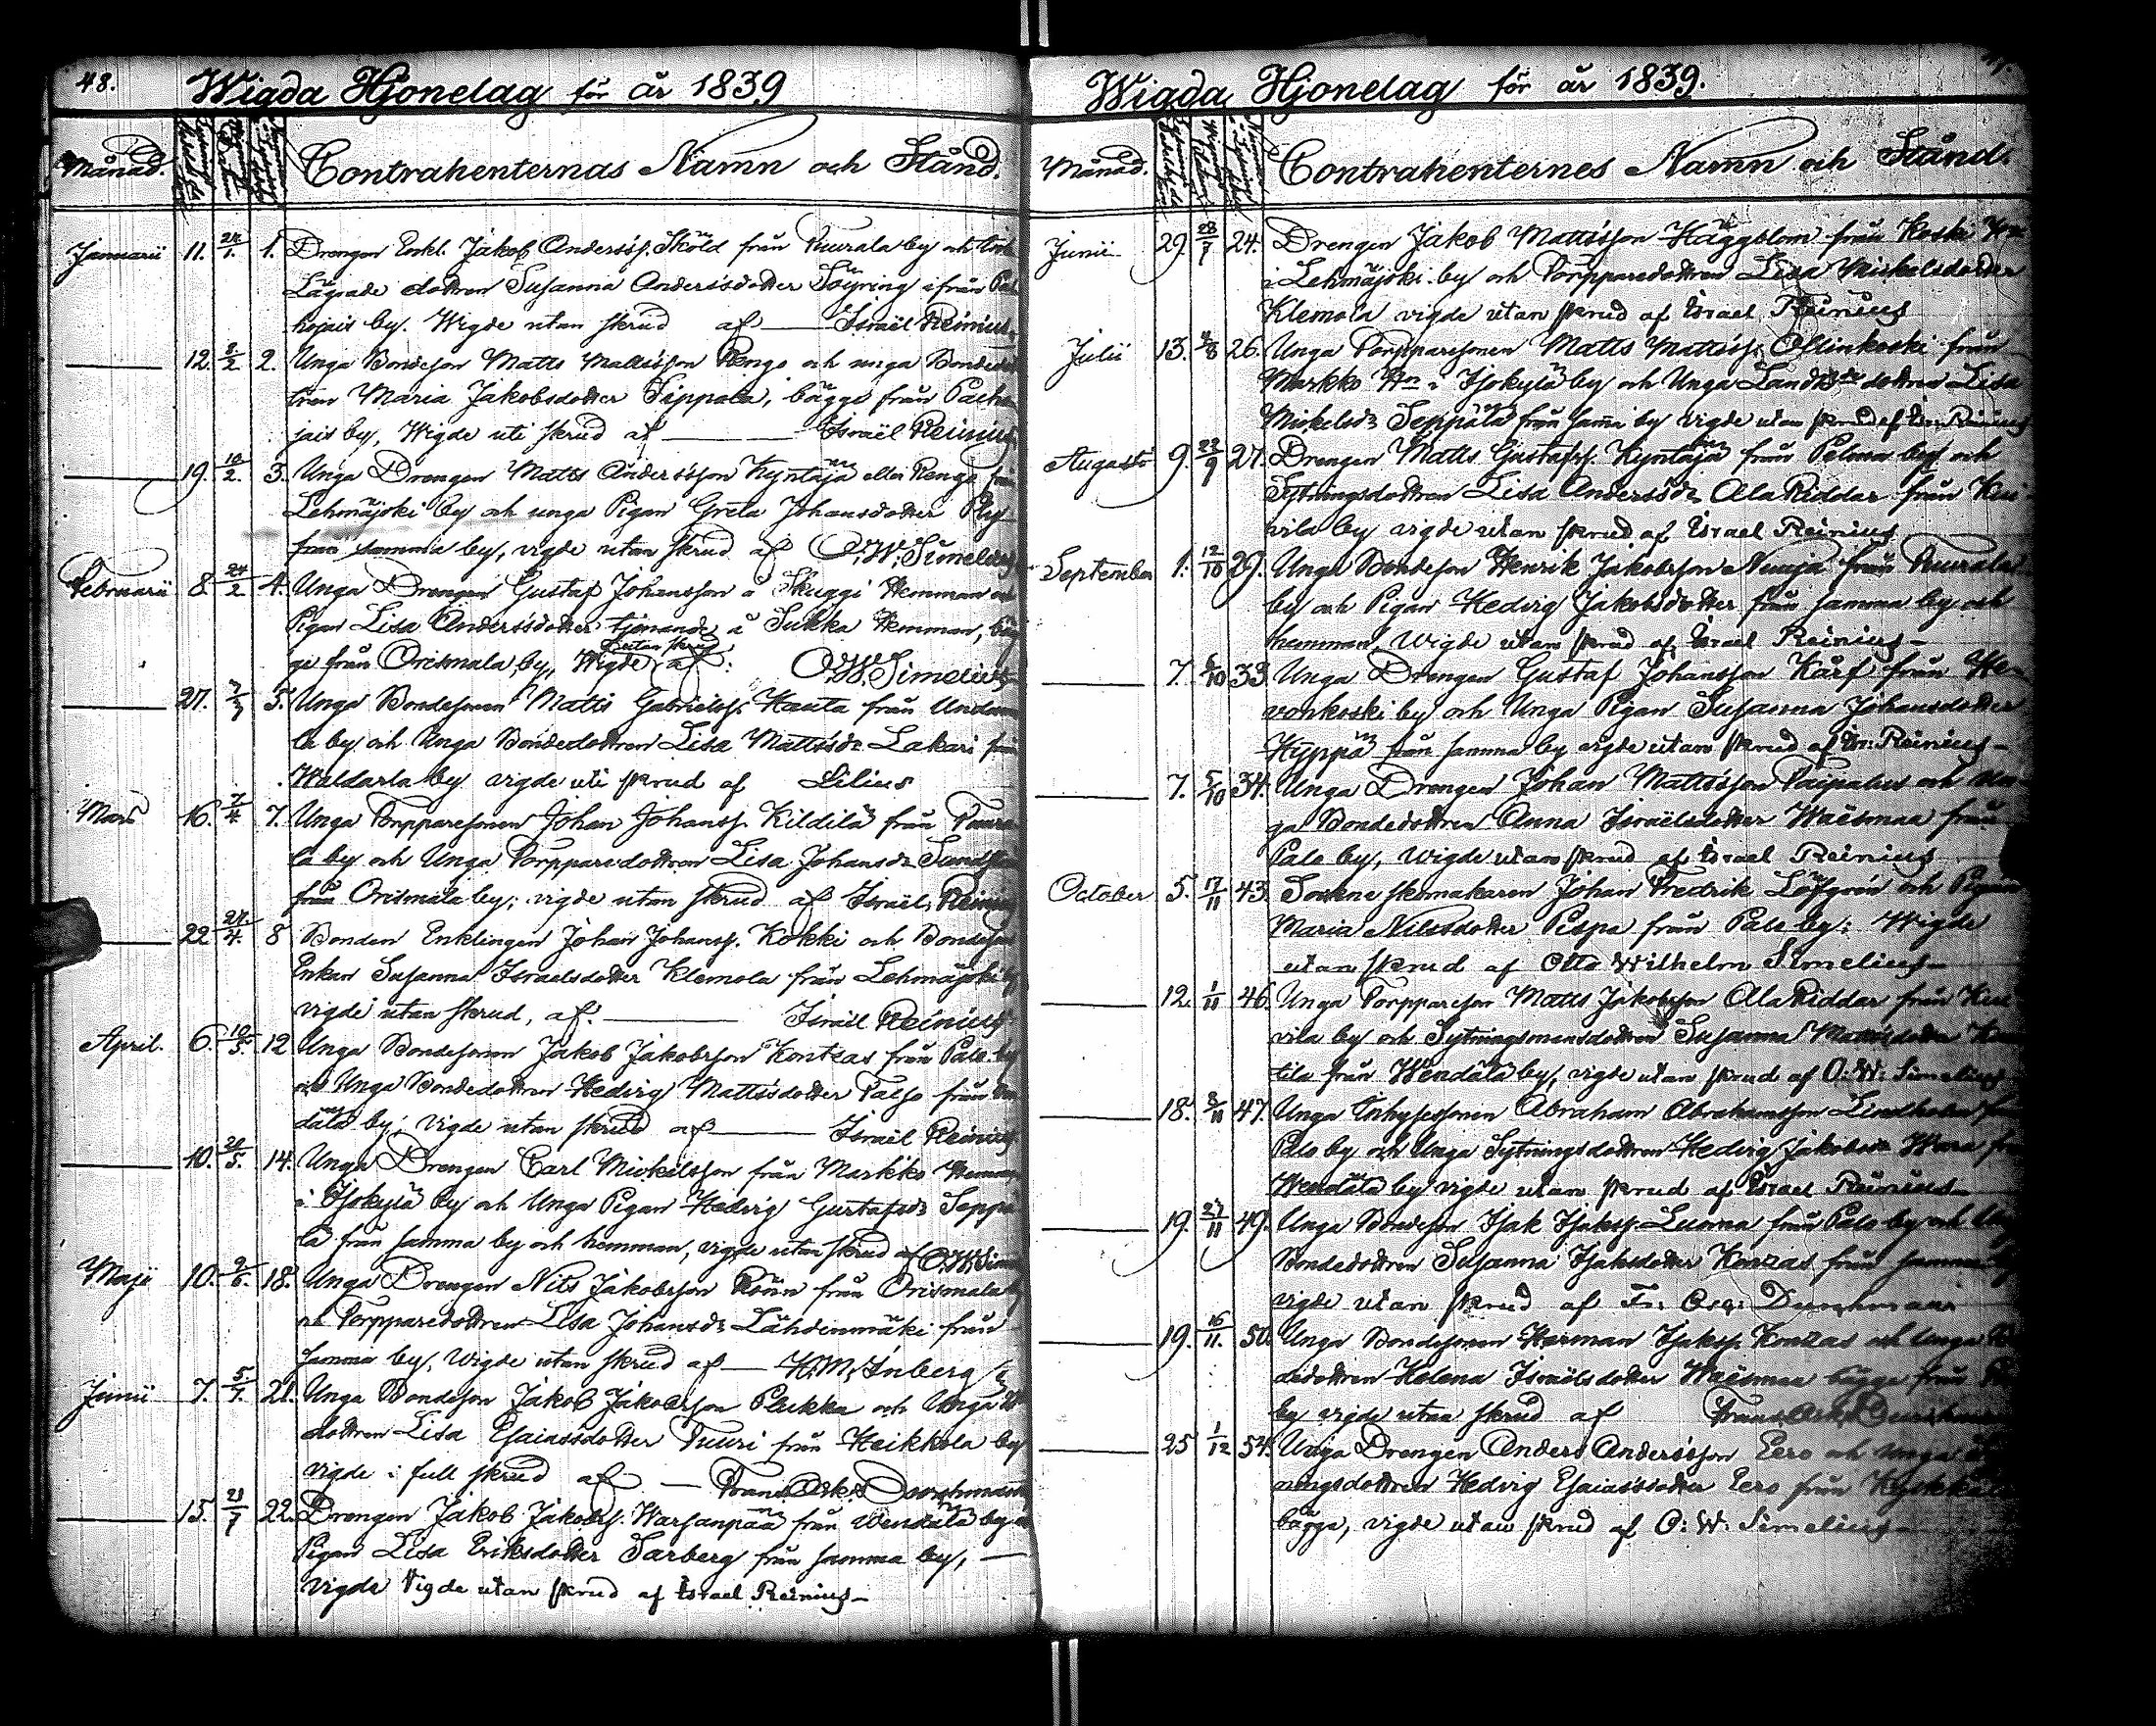 48.
Wigda Hjonelag för år 1839
Månad.
Contrahenternas Namn och Stånd.
Januarii 11. 24/1. 1. Drengen Enkl. Jakob Anderss. Sköld från Tuurala by och
Lägrade dottren Susanna Andersdotter Söyring ifrån Pal
hojais by. Wigde utan skrud af — Israël Reinius.
12. 2/2 2. Unga Bondeson Matts Mattsson Rengo och unga Bondedot
tren Maria Jakobsdotter Sippola, bägge från Palho
jais by, Wigde uti skrud af — Israël Reinius
19. 10/2. 3. Unga Drengen Matts Andersson Kyntäjä eller Rengo från
Lehmäjoki by och unga Pigan Greta Johansdotter
från samma by, vigde utan skrud af O. W. Simelius
Februarii 8. 24/2 4. Unga Drengen Gustaf Johansson å Skuggi Hemman och
Pigan Lisa Andersdotter tjenande å Sukka Hemman, bäg
ge från Orismala by, Wigde utan skrud af: O. W. Simelius
27. 2/3 5. Unga Bondesonen Matts Gabrielss. Hauta från
la by och Unga Bondedottren Lisa Mattsdr Lakari från
Waldarla by vigde uti skrud af Lilius
Mars 16. 7/4 7. Unga Torpparesonen Johan Johanss. Kildilä från Tuura
la by och Unga Torpparedottren Lisa Johansdr
från Orismala by; vigde utan skrud af Israël Reinius
22 24/4. 8 Bonden Enklingen Johan Johanss. Kokki och Bonde
Enkan Susanna Israelsdotter Klemola från Lehmäjoki by
vigde utan skrud, af. — Israël Reinius
April. 6. 10/5. 12 Unga Bondesonen Jakob Jakobsson Kontsas från Palo by
och Unga Bondedottren Hedvig Mattsdotter Talso från Wen
dälä by; vigde utan skrud af — Israël Reinius.
10. 20/5. 14. Unga Drengen Carl Mickelsson från Markko Hemman
i Isokylä by och Unga Pigan Hedvig Gustafsdr Seppä
lä från samma by och hemman, vigde utan skrud af O. W. Sime
Maji 10. 9/6. 18. Unga Drengen Nils Jakobsson Rönn från Orismala
och Torpparedottren Lisa Johansdr Lähdenmäki från
samma by, Wigde utan skrud af — H. M. Inberg
Junii 7. 5/7. 21. Unga Bondeson Jakob Jakobsson Plukka och Unga
dottren Lisa Esaiasdotter Tuuri från Heikkola by
vigde i full skrud af — Frans Osk. Durchman
15. 21/7 22. Drengen Jakob Jakobss. Warsanpää från Wendälä by och
Pigan Lisa Eriksdotter Sarberg från samma by, —
vigde vigde utan skrud af Israel Reinius —
Wigda Hjonelag för år 1839.
Månad.
Contrahenternes Namn och Stånd.
Junii 29. 28/7 24. Drengen Jakob Mattsson Häggblom från Koski Hn
i Lehmäjoki by och Torpparedottren Lisa Mickelsdotter
Klemola vigde utan skrud af Israel Reinius
Julii 13. /8 26. Unga Torpparesonen Matts Mattss. Ollinkoski från
Markko Hn i Isokylä by och Unga dottren Lisa
Mickelsdr Seppälä från sama by vigde utan skrud af Isr. Reinius
Augusti 9. 22/9 27. Drengen Matts Gustafss. Kyntäjä från Pelma by och
Sytningsdottren Lisa Andersdr AlaRiddar från Kui
vila by vigde utan skrud af Israel Reinius
September 1. 12/10 29. Unga Bondeson Henrik Jakobsson Nuuja från Tuurala
by och Pigan Hedvig Jakobsdotter från samma by och
hemman, Wigde utan skrud af Israel Reinius —
7. 6/10 33. Unga Drengen Gustaf Johansson Karf från Her
vonkoski by och Unga Pigan Susanna Johansdotter
Hyppä från samma by vigde utan skrud af Isr: Reinius —
7. 5/10 34. Unga Drengen Johan Mattsson Taipalus och Un
ga Bondedottren Anna Israëlsdotter Waismaa från
Palo by, Wigde utan skrud af Israel Reinius
October 5. 17/11 43. Sockne skomakaren Johan Fredrik Löfgrén och Pigan
Maria Nilsdotter Pispa från Palo by: Wigde
utan skrud af Otto Wilhelm Simelius —
12. 1/11 46. Unga Torppareson Matts Jakobsson AlaRiddar från Kui
vila by och Sytningsmansdottren Susanna Mattsdotter
tila från Wendälä by, vigde utan skrud af O. W. Simelius
18. 3/11 47. Unga Inhysessonen Abraham Abrahamsson Lindholm från
Palo by och Unga Sytningsdottren Hedvig Jakobsdr från
Wendälä by vigde utan skrud af Israel Reinius —
19. 27/11 49. Unga Bondeson Isak Isakss. Luoma från Palo by och Unga
Bondedottren Susanna Isaksdotter Konzas från samma by
vigde utan skrud af Fr: Osc: Durchman
19. 16/11. 50. Unga Bondesonen Herman Isakss. Konzas och Unga Bon
dedottren Helena Israëlsdotter Waismaa bägge från
by vigde utan skrud af Frans Osk. Durchman
25 1/12 54. Unga Drengen Anders Andersson Eero och Unga
ningsdottren Hedvig Esaiasdotter Eero från
bägge, vigde utan skrud af O. W. Simelius —